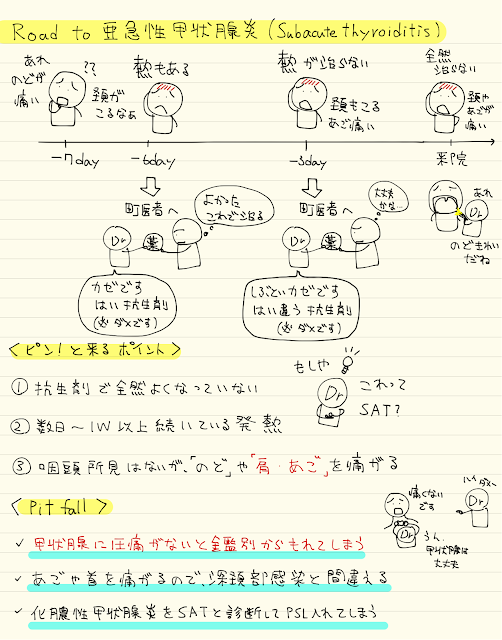 Road to 亜急性甲状腺炎 (Subacute thyroiditis)
あれ
のどが
痛い
??
頚が
こるなぁ
熱もある
熱が治らない
頚もこる
あご痛い
全然
治らない
頚や
あごが
痛い
-7day
-6day
-3day
来院
町医者へ
よかった
これで治る
Dr
薬
カゼです
はい抗生剤
(※ダメです)
町医者へ
大丈夫
かな…
Dr
薬
しぶといカゼです
はい違う抗生剤
(※ダメです)
あれ
Dr
のどきれい
だね
<ピン!と来るポイント>
① 抗生剤で全然よくなっていない
② 数日~1W以上続いている発熱
③ 咽頭所見はないが、「のど」や「肩・あご」を痛がる
もしや
Dr
これって
SAT?
<Pit fall>
✓ 甲状腺に圧痛がないと全鑑別からもれてしまう
✓ あごや首を痛がるので、深頚部感染と間違える
✓ 化膿性甲状腺炎をSATと診断してPSL入れてしまう
痛くない
です
Dr
うん、
甲状腺は
大丈夫
ハイ ダメ〜
Dr